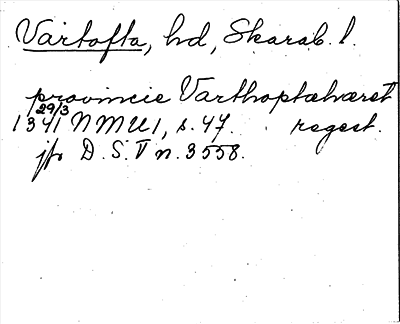 Vartofta, hd, Skarab. l.
provincie Varthoptæhæret
1341 29/3 NMU 1, s. 47. regest.
jfr D. S. V n. 3558.